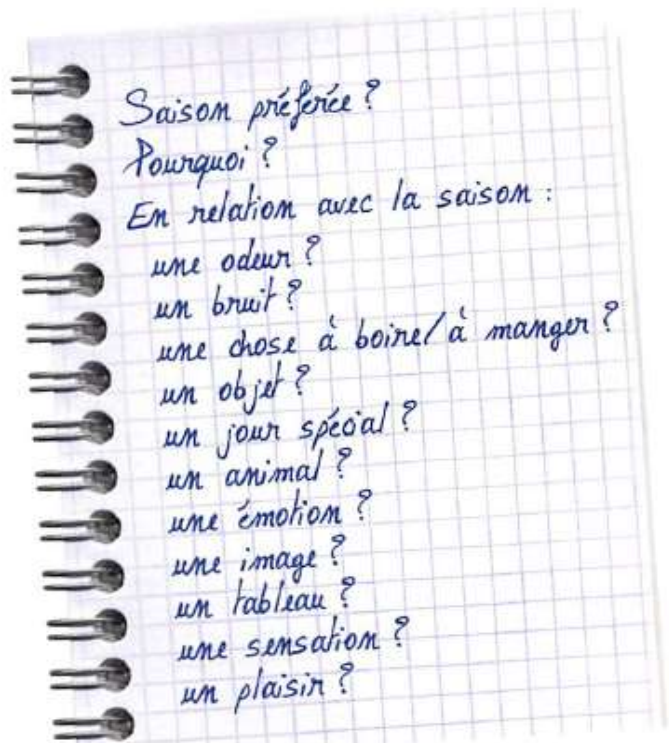 Saison préférée ?
Pourquoi ?
En relation avec la saison :
une odeur ?
un bruit ?
une chose à boire / à manger ?
un objet ?
un jour spécial ?
un animal ?
une émotion ?
une image ?
un tableau ?
une sensation ?
un plaisir ?